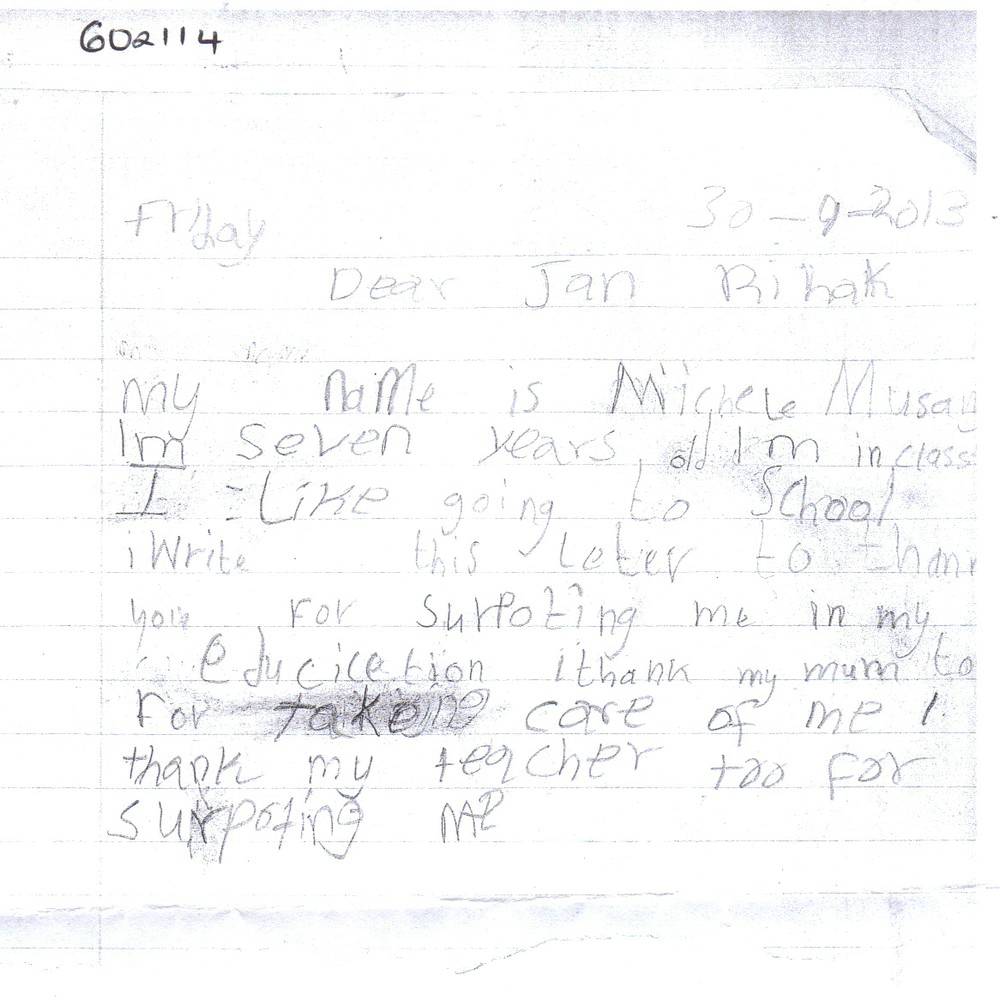 602114
Friday 30-9-2013
Dear Jan Rihak
My name is Michele Musa
Im seven years old Im in class
I Like going to School
i Write this leter to than
you For surpoting me in my
educicetion i thank my mum to
For taking care of me I
thank my teacher too for
surpoting me